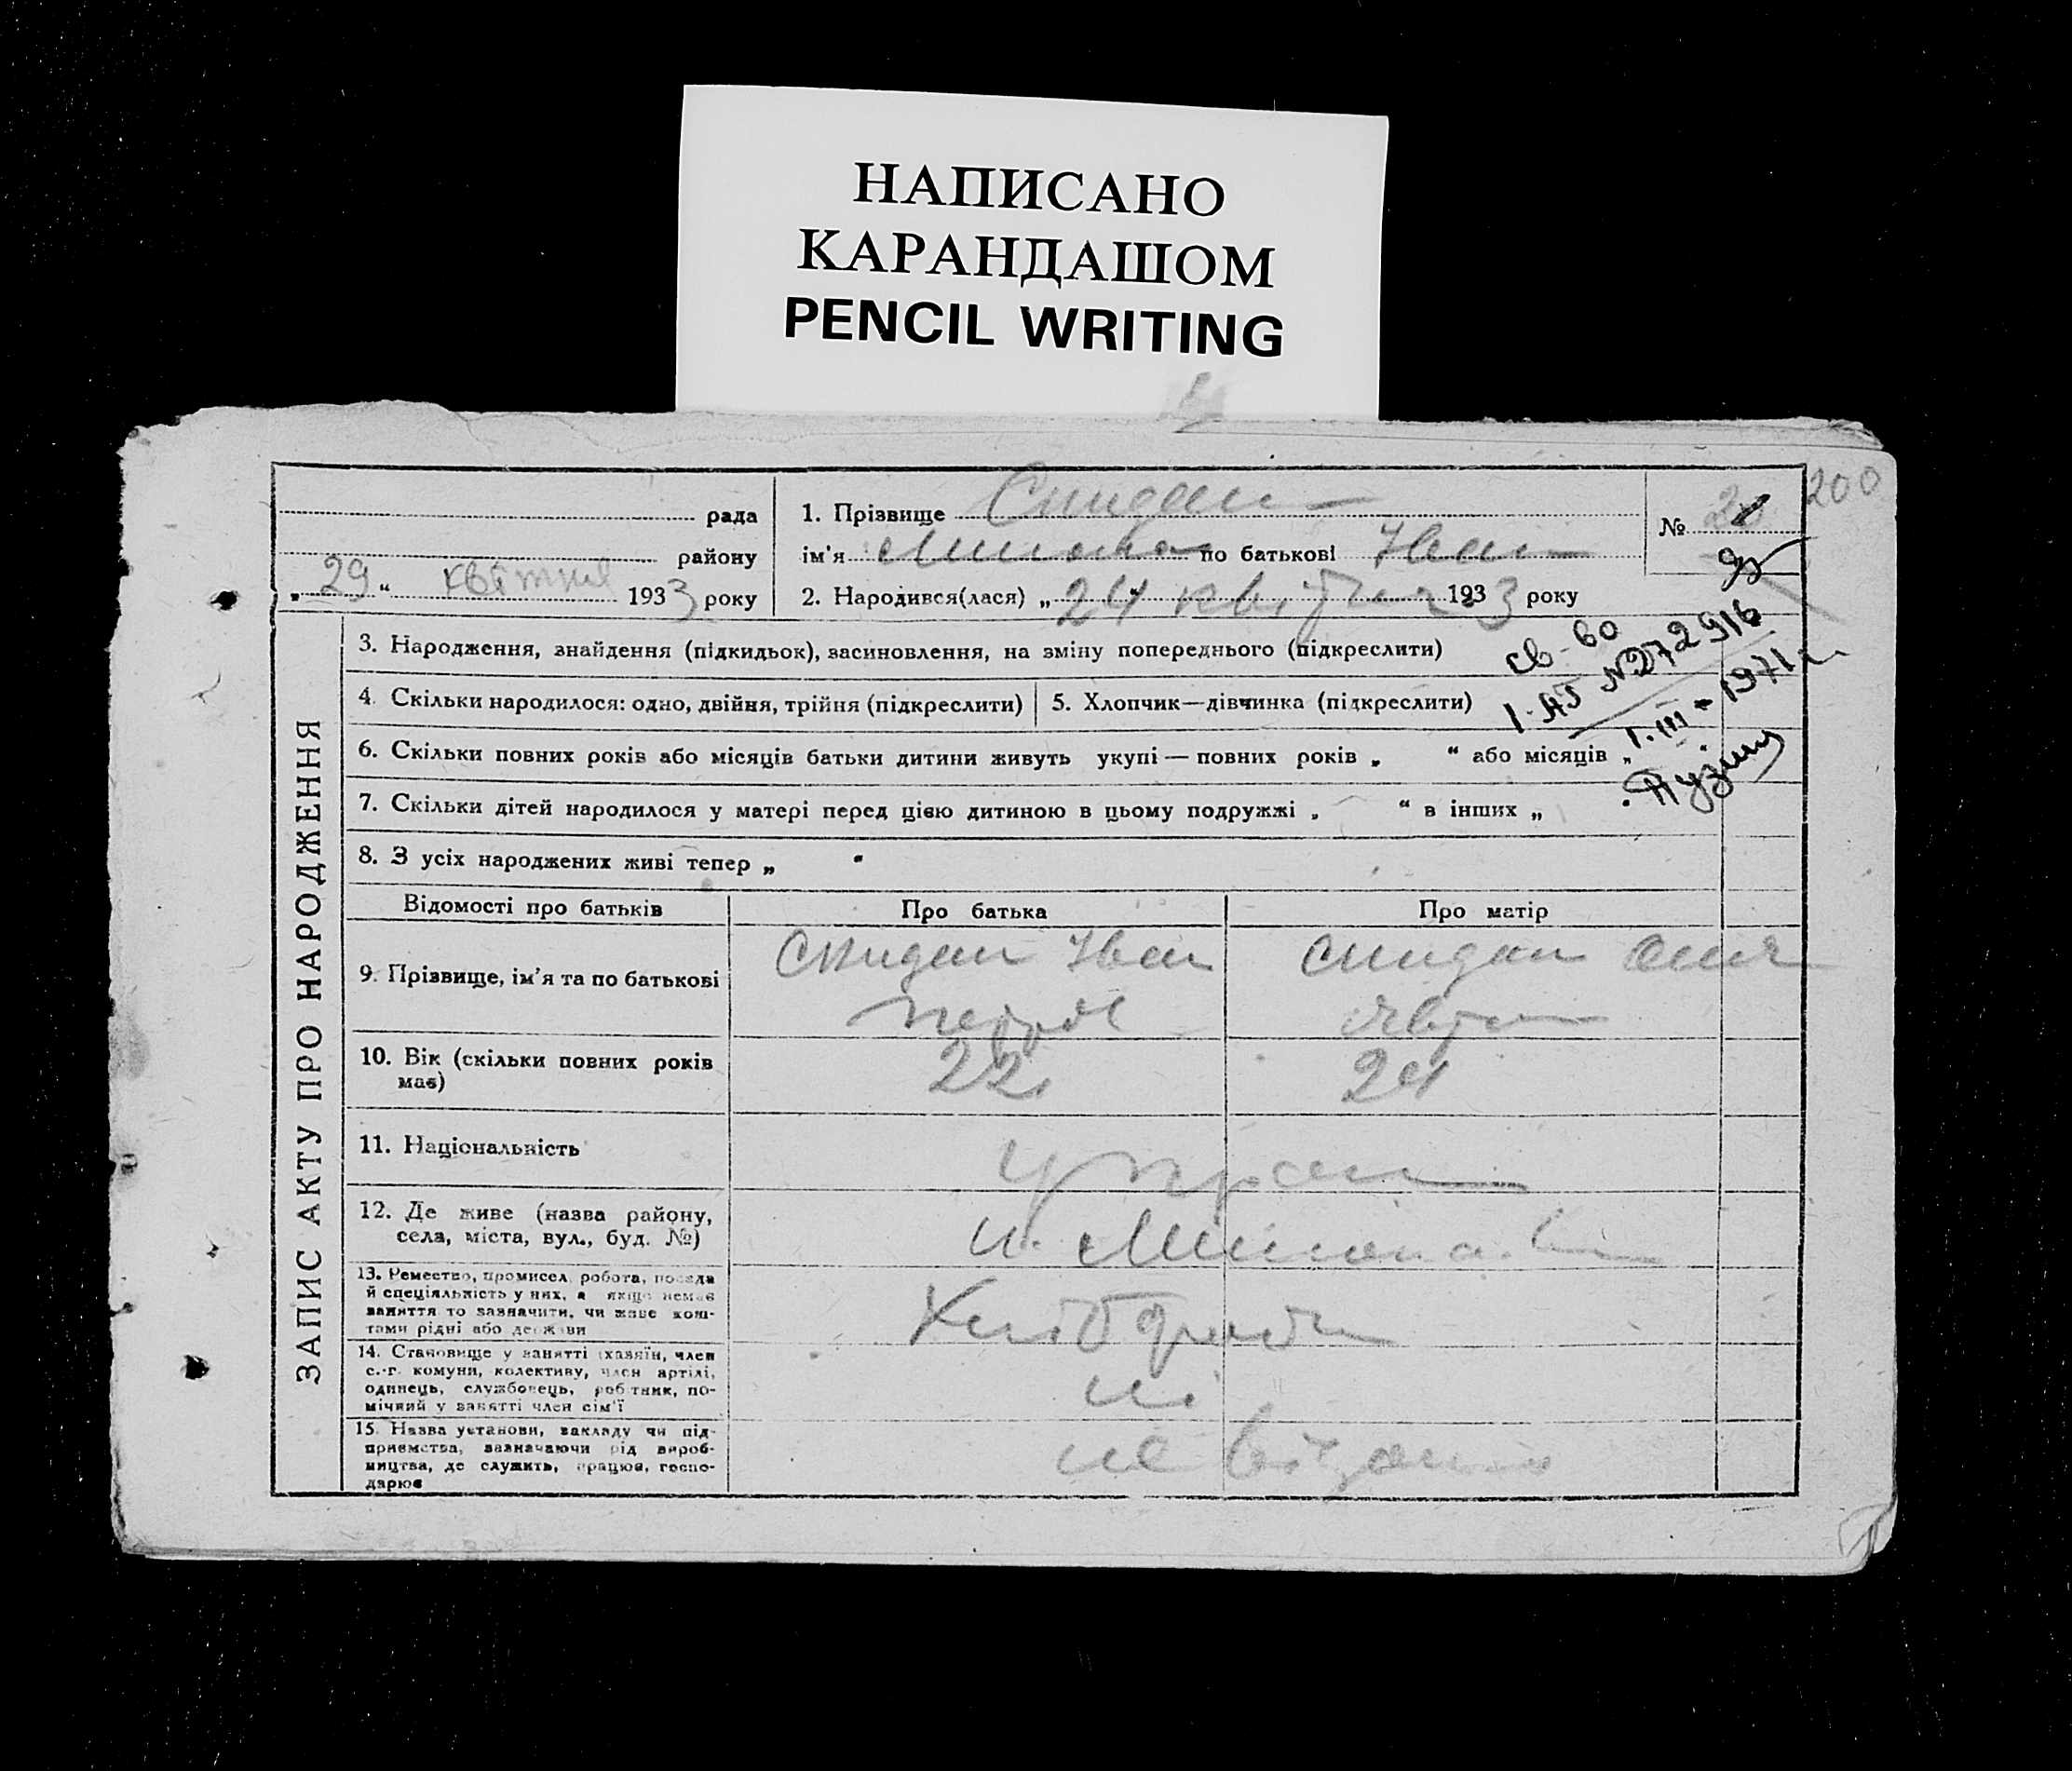 НАПИСАНО
КАРАНДАШОМ
PENCIL WRITING
200
рада
району
„ 29 “ квітня 1933 року
1. Прізвище Скидан
ім'я по батькові Іван
2. Народився(лася) „ 24 квітня 1933 року
№
св-во
I-АБ №272916
1.III-1971г.
ЗАПИС АКТУ ПРО НАРОДЖЕННЯ
3. Народження, знайдення (підкидьок), засиновлення, на зміну попереднього (підкреслити)
4. Скільки народилося: одно, двійня, трійня (підкреслити)
5. Хлопчик—дівчинка (підкреслити)
6. Скільки повних років або місяців батьки дитини живуть укупі — повних років „ “ або місяців „
7. Скільки дітей народилося у матері перед цією дитиною в цьому подружжі „ “ в інших „
8. З усіх народжених живі тепер „ “
Відомості про батьків
Про батька
Про матір
9. Прізвище, ім'я та по батькові
Скидан Іван
Скидан
10. Вік (скільки повних років має)
22
24
11. Національність
україн
12. Де живе (назва району,
села, міста, вул., буд. №)
13. Ремество, промисел, робота, посада
й спеціяльність у них, а якщо немає
заняття то зазначити, чи живе кош-
тами рідні або держави
Хлібороби
14. Становище у занятті (хазяїн, член
с.-г. комуни, колективу, член артілі,
одинець, службовець, робітник, по-
мічний у занятті член сім'ї
ні
15. Назва установи, закладу чи під-
приємства, зазначаючи рід вироб-
ництва, де служить, працює, госпо-
дарює
не